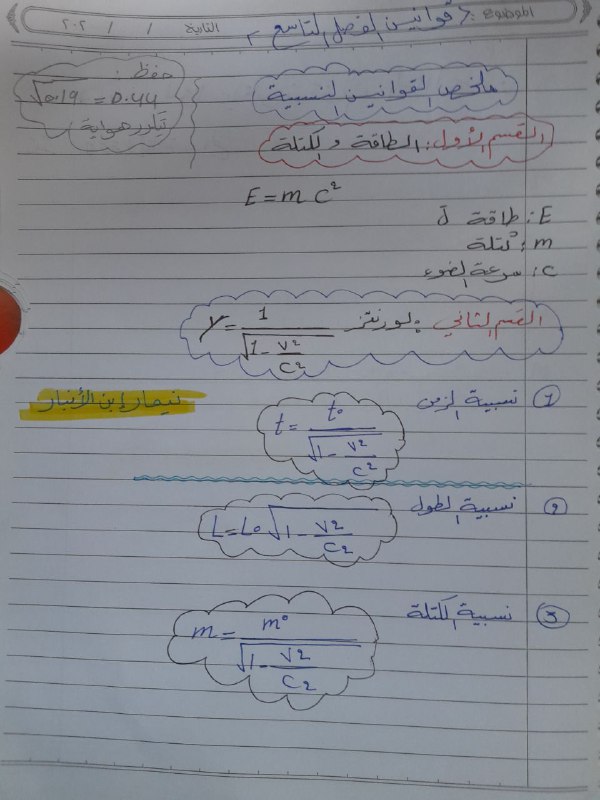 الموضوع: < قوانين الفصل التاسع > التاريخ / / ٢٠٢
حفظ:
√0.19 = 0.44
ملخص القوانين النسبية
القسم الأول: الطاقة والكتلة
E = m c²
E: طاقة J
m: كتلة
c: سرعة الضوء
القسم الثاني: لورنتز γ = 1 / √(1 - v²/c²)
① نسبية الزمن
نيمار إبن الأنبار
t = t₀ / √(1 - v²/c²)
② نسبية الطول
L = L₀ √(1 - v²/c²)
③ نسبية الكتلة
m = m₀ / √(1 - v²/c²)